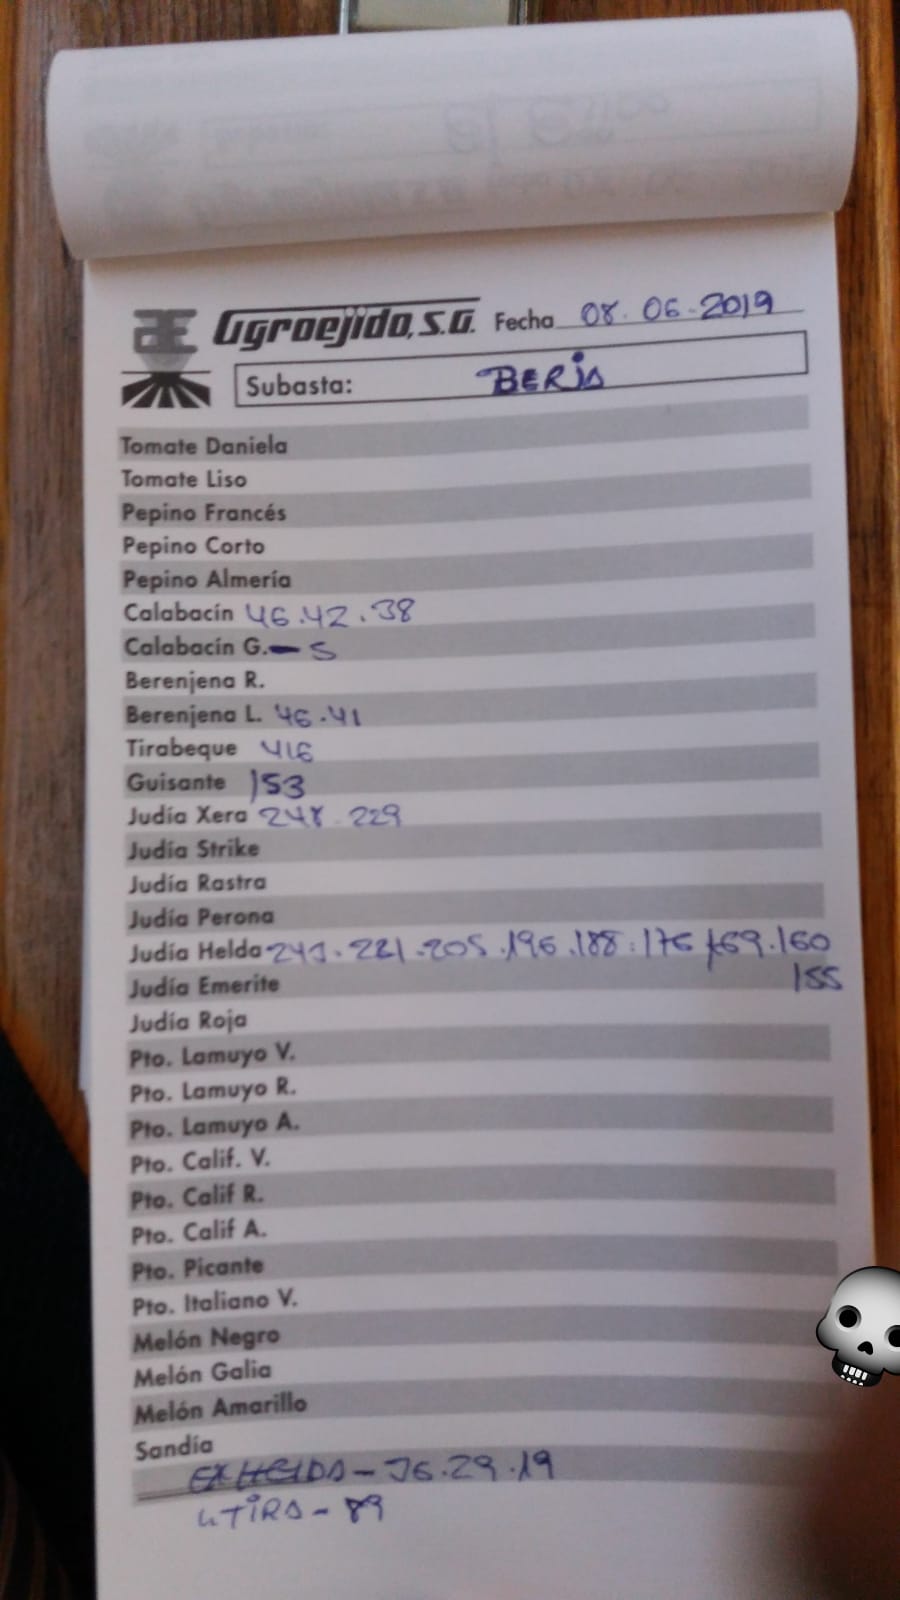 Agroejido, S.A. Fecha 08.06.2019
Subasta: BERJA
Tomate Daniela
Tomate Liso
Pepino Francés
Pepino Corto
Pepino Almería
Calabacín 46.42.38
Calabacín G. - 5
Berenjena R.
Berenjena L. 46.41
Tirabeque 416
Guisante 153
Judía Xera 248.229
Judía Strike
Judía Rastra
Judía Perona
Judía Helda 221.205.196.188.176.169.160
155
Judía Emerite
Judía Roja
Pto. Lamuyo V.
Pto. Lamuyo R.
Pto. Lamuyo A.
Pto. Calif. V.
Pto. Calif R.
Pto. Calif A.
Pto. Picante
Pto. Italiano V.
Melón Negro
Melón Galia
Melón Amarillo
Sandía
29.19
89